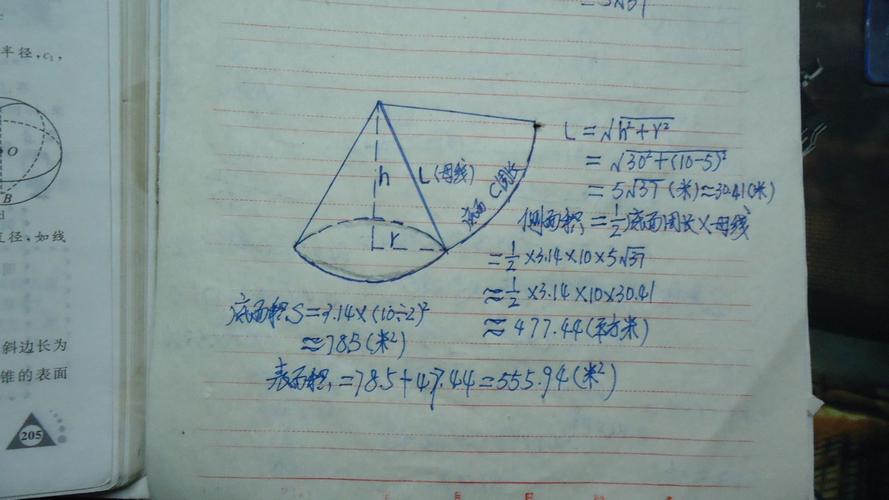 半径,c₁,
O
B
直径、如线
斜边长为
锥的表面
205
h
L(母线)
r
底面C周长
L=√h²+r²
=√30²+(10-5)²
=5√37(米)≈30.41(米)
侧面积=½底面周长×母线
=½×3.14×10×5√37
≈½×3.14×10×30.41
≈477.44(平方米)
底面积S=3.14×(10÷2)²
≈78.5(米²)
表面积=78.5+47.44=555.94(米²)